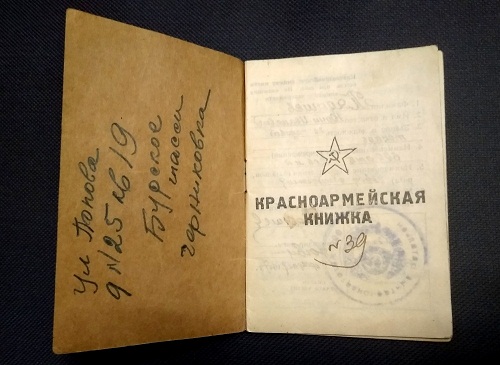 ул Попова
д №25 кв 19
Бурское
шасси
черниковка
КРАСНОАРМЕЙСКАЯ
КНИЖКА
№ 39